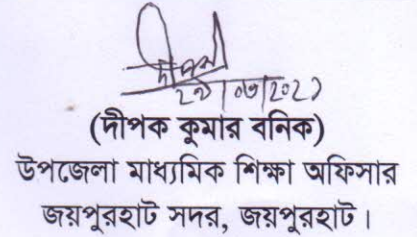 দীপক
২৯/০৬/২০২১
(দীপক কুমার বনিক)
উপজেলা মাধ্যমিক শিক্ষা অফিসার
জয়পুরহাট সদর, জয়পুরহাট।